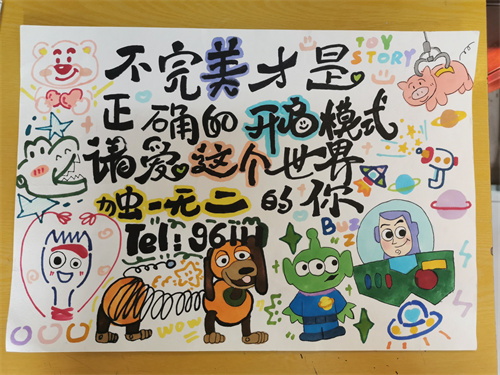 不完美才是
TOY
STORY
正确的开启模式
请爱这个世界
独一无二的你
Tel:96111
BUZZ
WOW